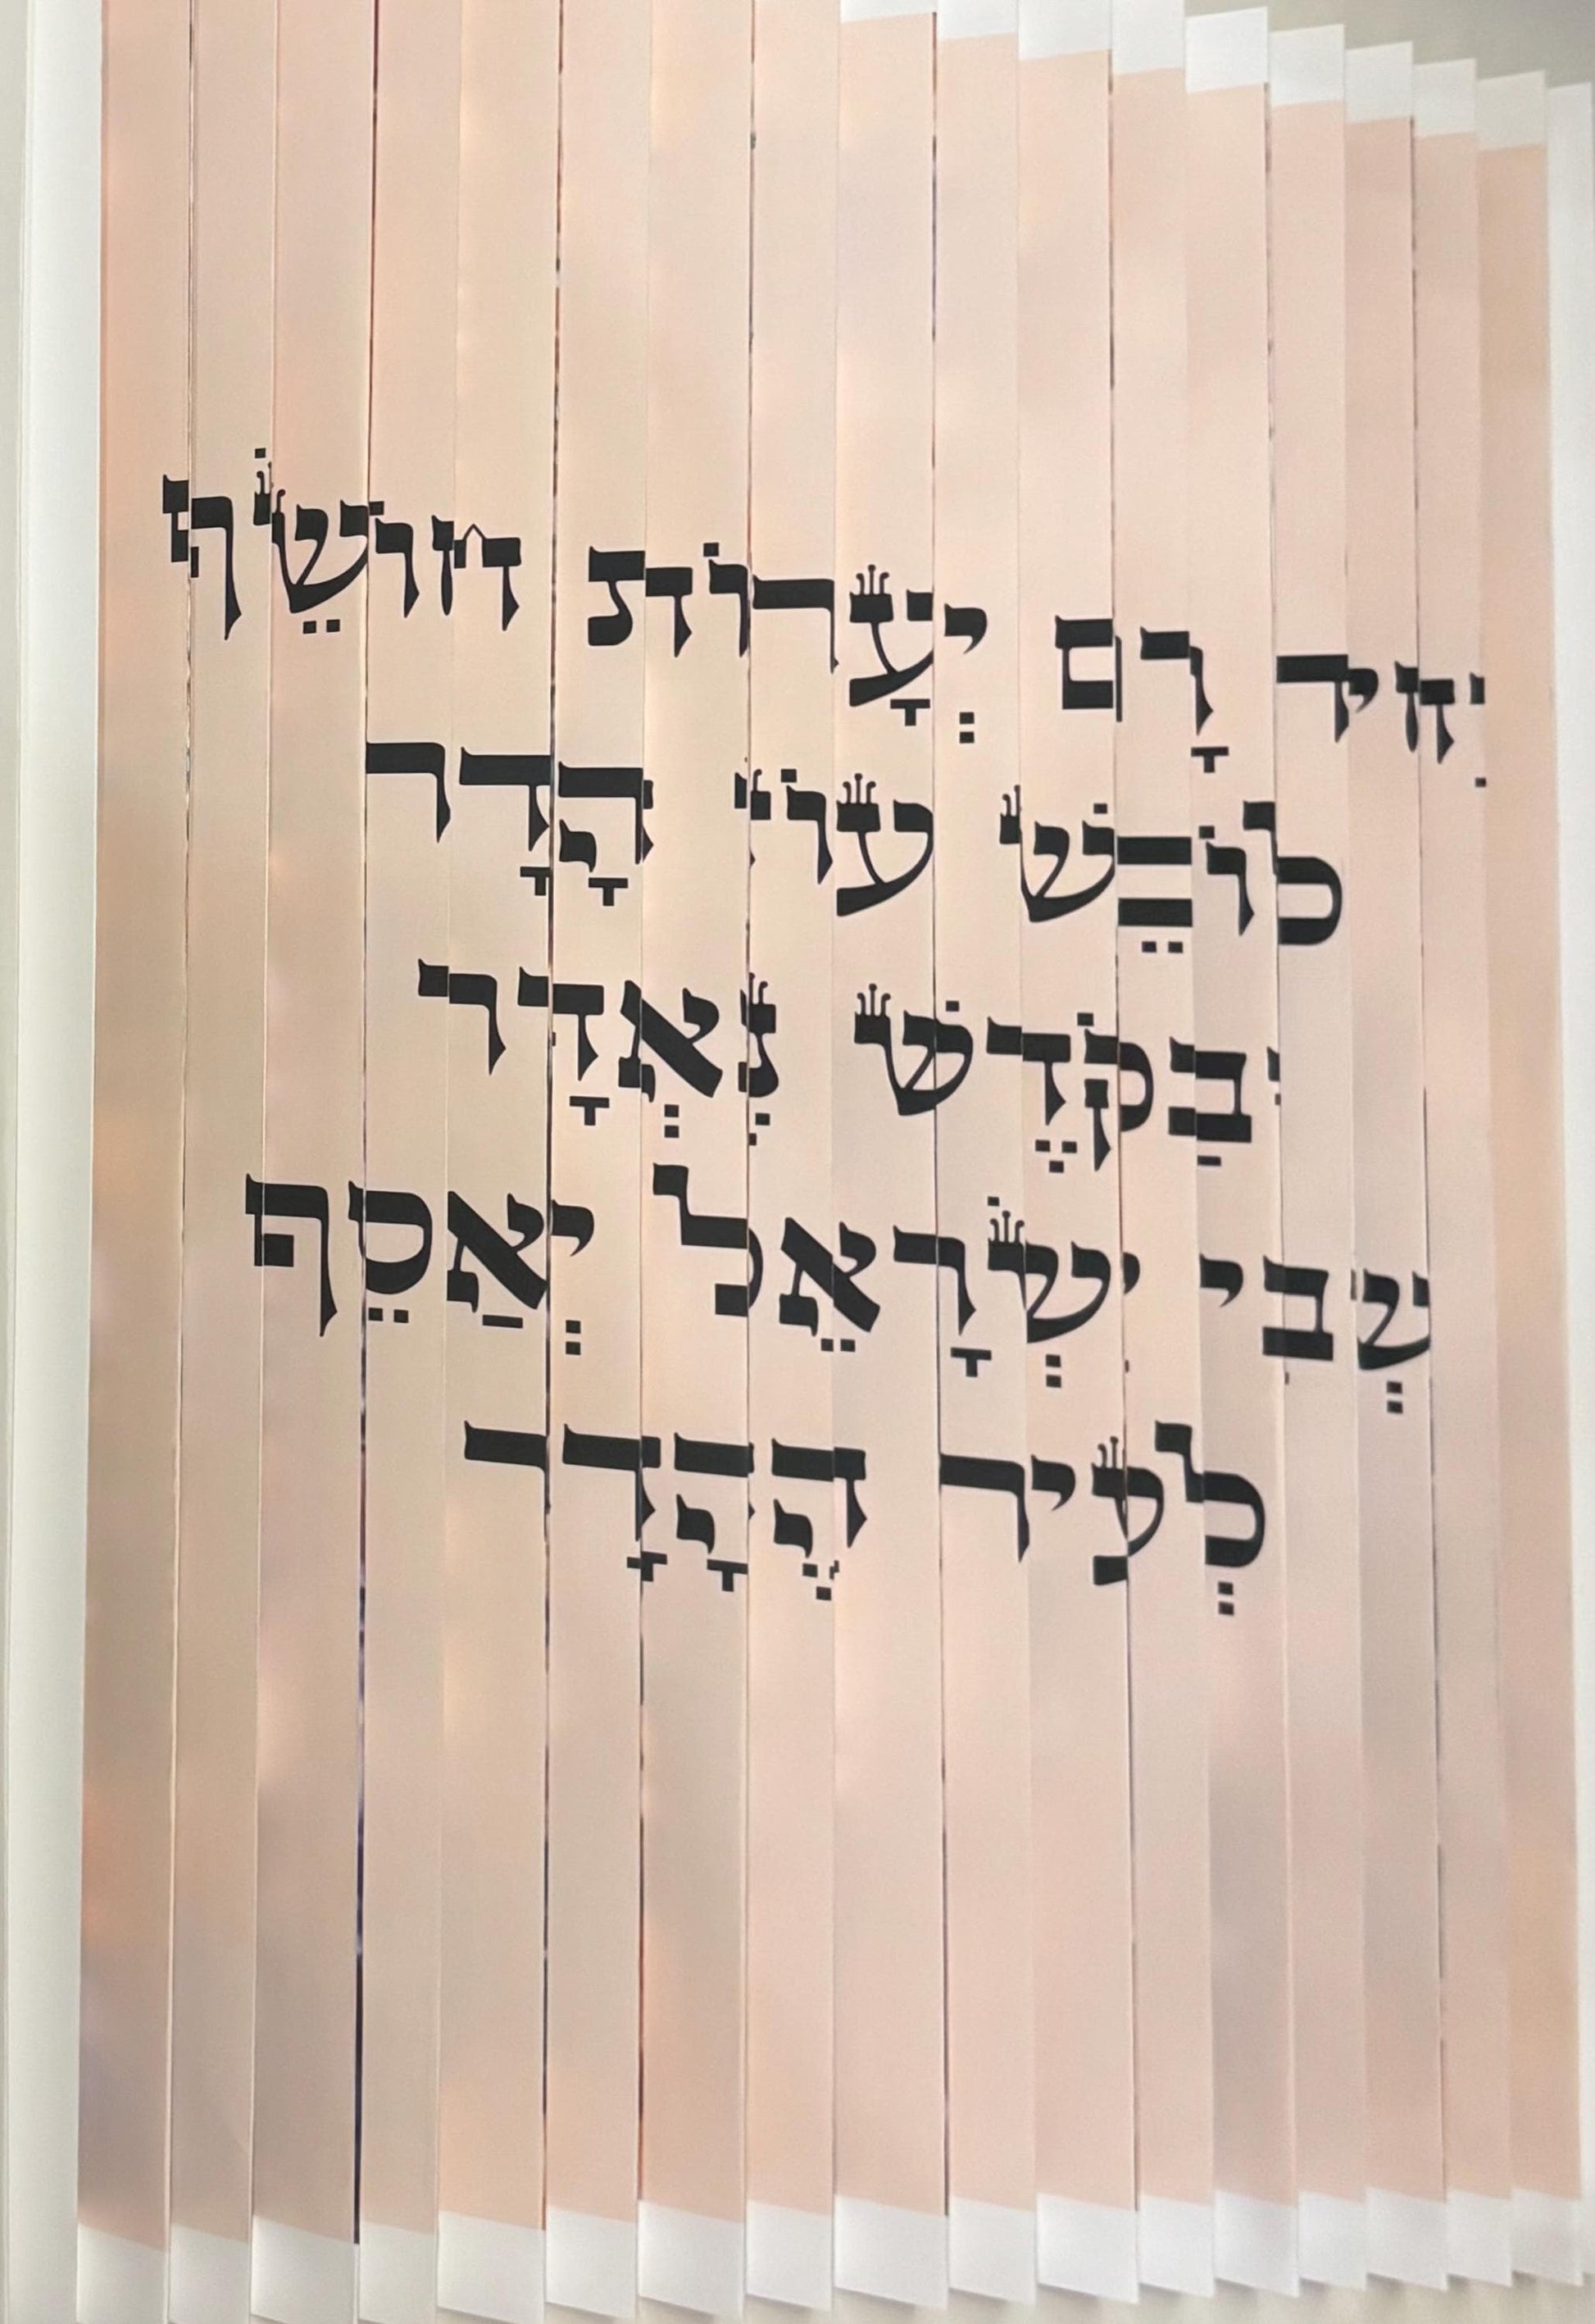 יָחִיד רָם יְעָרוֹת חוֹשֵׂף
לוֹבֵשׁ עוֹז הָדָר
וּבַקֹדֶשׁ נֶאְדָר
שְׁבִי יִשְׂרָאֵל יְאַסֵף
לְעִיר הֶהָדָר